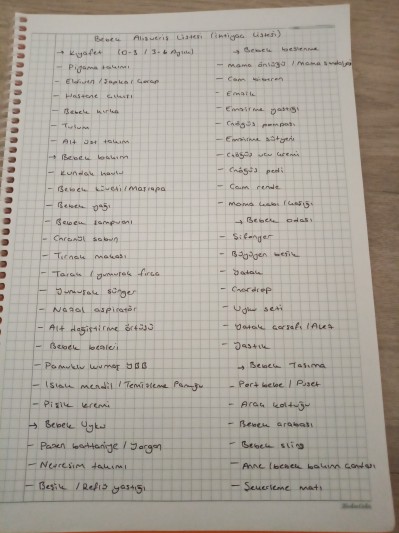 Bebek Alışveriş Listesi (İhtiyaç Listesi)
→ Kıyafet (0-3 / 3-6 Aylık)
- Pijama takımı
- Eldiven / Şapka / Çorap
- Hastane çıkışı
- Bebek hırka
- Tulum
- Alt üst takım
→ Bebek bakım
- Kundak havlu
- Bebek küveti / Maşrapa
- Bebek yağı
- Bebek şampuanı
- Granül sabun
- Tırnak makası
- Tarak / yumuşak fırça
- Yumuşak sünger
- Nazal aspiratör
- Alt değiştirme örtüsü
- Bebek bezleri
- Pamuklu kumaş
- Islak mendil / Temizleme Pamuğu
- Pişik kremi
→ Bebek Uyku
- Pazen battaniye / Yorgan
- Nevresim takımı
- Beşik / Reflü yastığı
→ Bebek beslenme
- Mama önlüğü / Mama sandalyesi
- Cam biberon
- Emzik
- Emzirme yastığı
- Göğüs pompası
- Emzirme sütyeni
- Göğüs ucu kremi
- Göğüs pedi
- Cam rende
- Mama kabı / kaşığı
→ Bebek odası
- Şifonyer
- Büyüyen beşik
- Yatak
- Gardrop
- Uyku seti
- Yatak çarşafı / Alez
- Yastık
→ Bebek Taşıma
- Portbebe / Puset
- Araç koltuğu
- Bebek arabası
- Bebek sling
- Anne / bebek bakım çantası